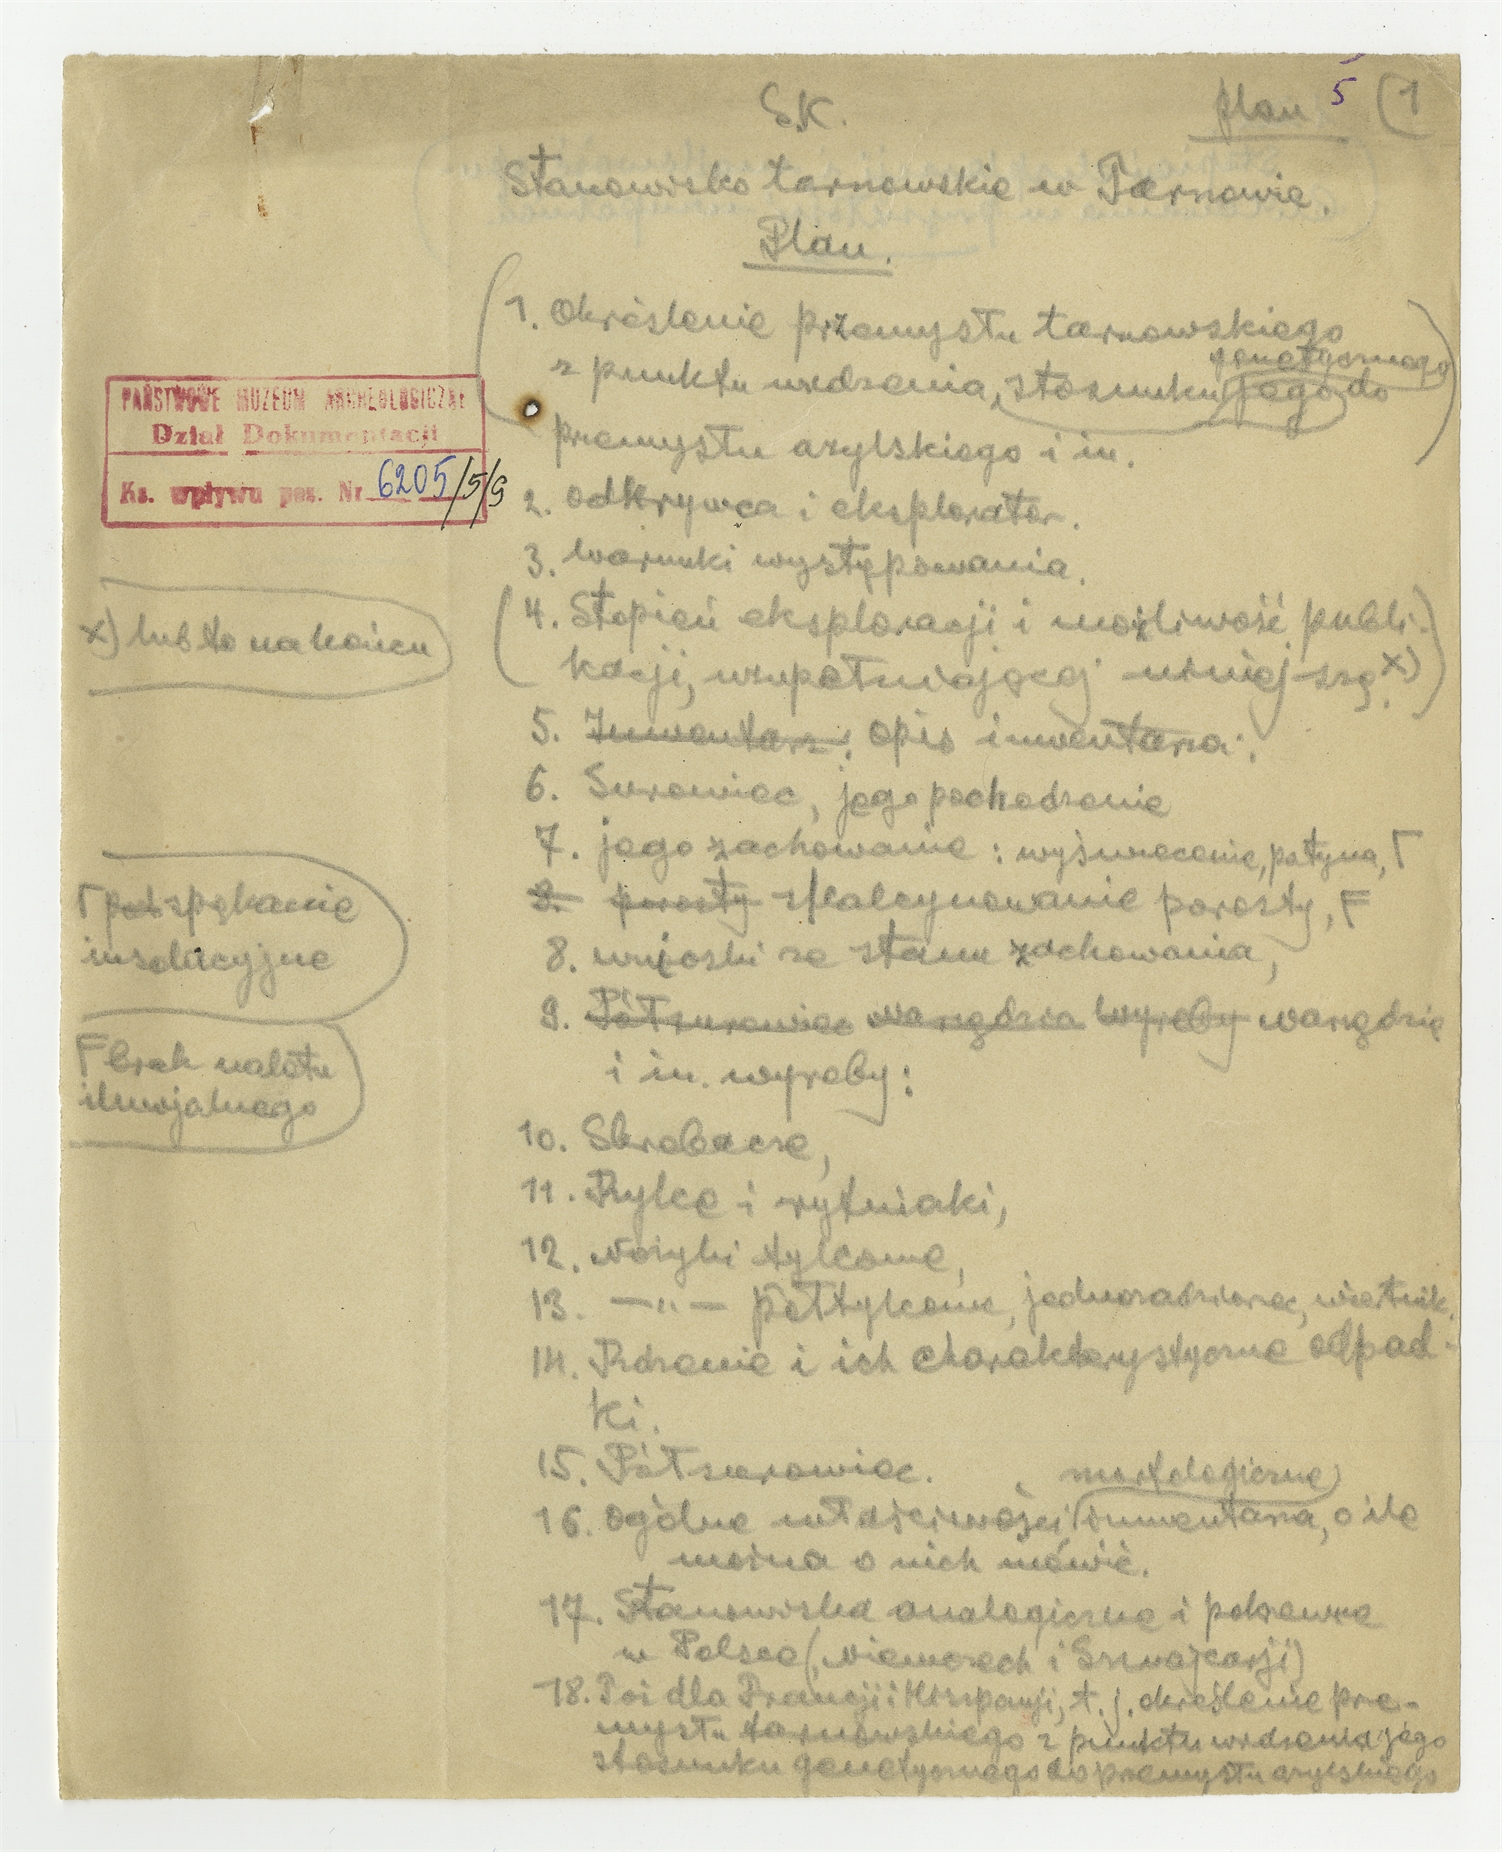 S.K.
plan 5 (1
Stanowisko tarnowskie w Tarnowie.
Plan.
1. Określenie przemysłu tarnowskiego
genetycznego
z punktu widzenia, stosunku jego do
przemysłu azylskiego i in.
PAŃSTWOWE MUZEUM ARCHEOLOGICZNE
Dział Dokumentacji
Ks. wpływu poz. Nr 6205/5/9
2. odkrywca i eksplorator.
3. warunki występowania.
(4. Stopień eksploracji i możliwość publi-
kacji, uzupełniającej niniejszą. x)
x) lub to na końcu
5. Inwentarz: opis inwentarza:.
6. Surowiec, jego pochodzenie
7. jego zachowanie: wyświecenie, patyna, Γ
8. porosty skalcynowanie porosty, F
Γ pod spękanie
insolacyjne
8. wnioski ze stanu zachowania,
9. Półsurowiec narzędzia wyroby narzędzie
i in. wyroby:
F brak nalotu
iluwjalnego
10. Skrobacze,
11. Rylce i rylniaki,
12. Nożyki tylcowe,
13. —"— półtylcowe, jednozadziorce,
14. Rdzenie i ich charakterystyczne odpad-
ki.
15. Półsurowiec.
morfologiczne
16. ogólne właściwości inwentarza, o ile
można o nich mówić.
17. Stanowiska analogiczne i pokrewne
w Polsce (, Niemczech i Szwajcarji)
18. Toż dla Francji i Hiszpanji, t.j. określenie prze-
mysłu tarnowskiego z punktu widzenia jego
stosunku genetycznego do przemysłu azylskiego